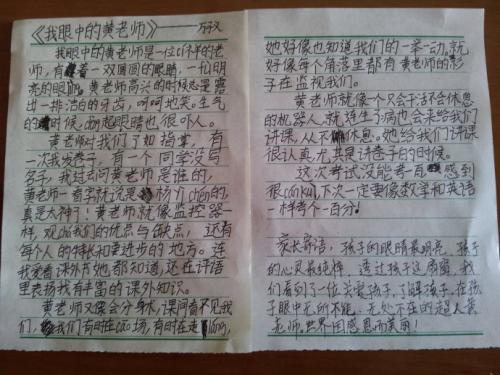 《我眼中的黄老师》——万子义
我眼中的黄老师是一位cí祥的老
师,有着一双圆圆的眼睛,一扎明
亮的眼。黄老师高兴的时候总是露
出一排洁白的牙齿,呵呵地笑。生气
的时候,瞪起眼睛也很吓人。
黄老师对我们了如指掌,有
一次我发卷子,有一个同学没写
名字,我过去问黄老师是谁的,
黄老师一看字就说是杨亦chén的,
真是太神了!黄老师就像监控器一
样,观chá我们的优点与缺点,还有
每个人的特长和要进步的地方。连
我爱看课外书她都知道,还在评语
里表扬我有丰富的课外知识。
黄老师又像会分身术,课间看不见我
们,我们有时在cāo场,有时在走láng,
她好像也知道我们的一举一动。就
好像每个角落里都有黄老师的影
子在监视我们。
黄老师就像个只会干活不会休息
的机器人,就连生了病也会来给我们
讲课,从不休息。她给我们讲课
很认真,尤其是讲卷子的时候。
这次考试没能考一百感到
很cán kuì,下次一定要像数学和英语
一样考个一百分!
家长寄语:孩子的眼睛最明亮,孩子
的心灵最纯粹,透过孩子这扇窗,我
们看到了一位关爱孩子,了解孩子,在孩
子眼中无所不能、无处不在的超人黄
老师,世界因感恩而美丽!